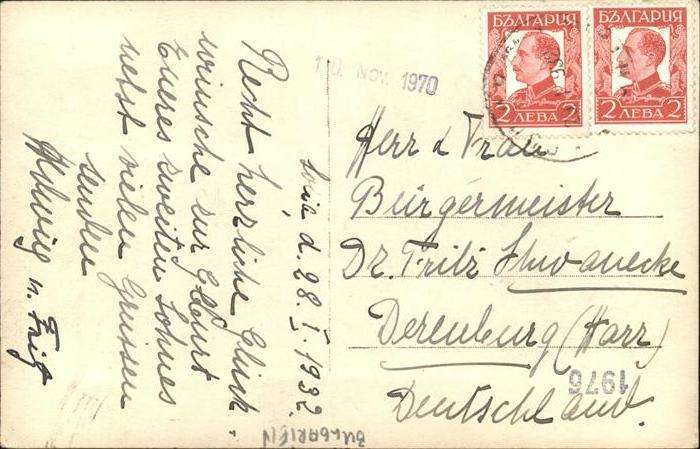 БЪЛГАРИЯ
2 ЛЕВА 2
БЪЛГАРИЯ
2 ЛЕВА 2
10. Nov. 1970
d. 28. I. 1932.
Recht herzliche Glück-
wünsche zur Geburt
Eueres zweiten Sohnes
nebst vielen Grüssen
senden
u. Fritz
Herr u Frau
Bürgermeister
Dr. Fritz Schwanecke
Derenburg (Harz)
Deutschland.
1976
BULGARIEN